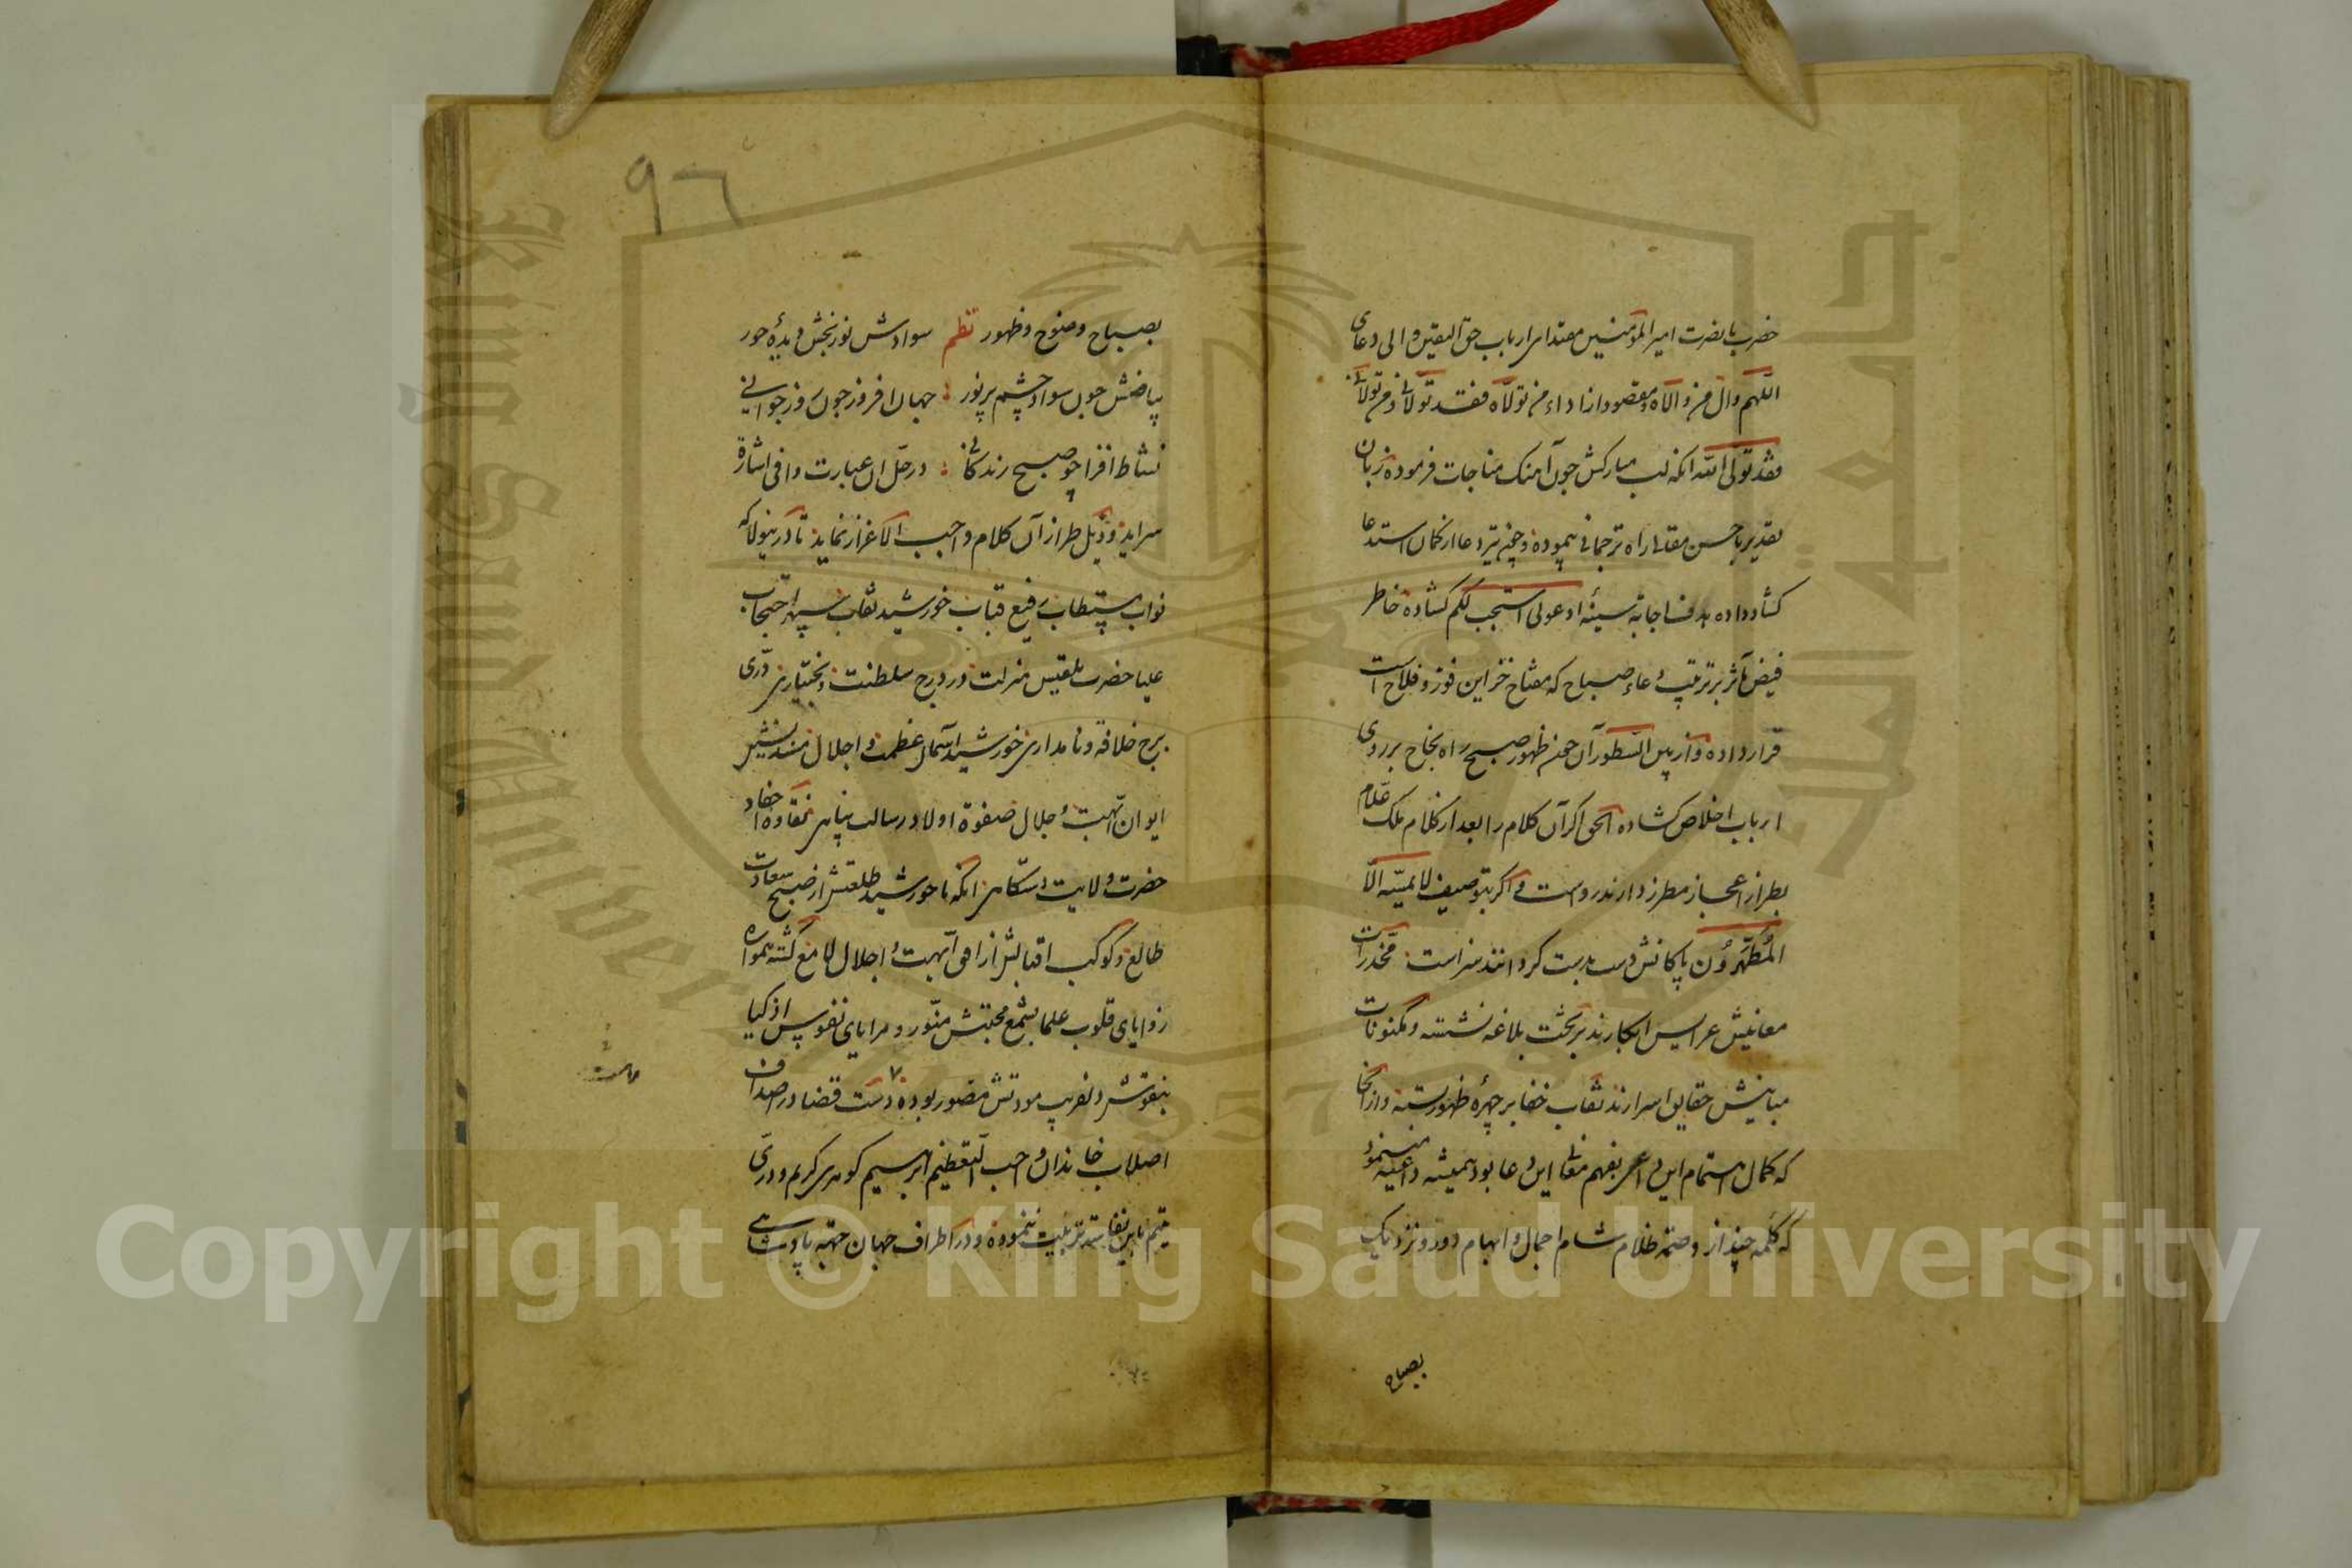 حضرت با نضرت امیر المؤمنین مقتدای ارباب حق الیقین والی دعای
اللهم وال من والاه و مقصود ازاداء من تولاه فقد تولانی و من تولانی
فقد تولی الله انکه لب مبارکش چون آهنک مناجات فرموده زبان
تقدیر باحسن مقالی راه ترجمانی پیموده و چون تیر دعا از کمان استدعا
کشاد داده هدف اجابة سینهٔ ادعونی استجب لکم کشاده خاطر
فیض مآثر بر ترتیب دعاء صباح که مفتاح خزاین فوز و فلاح است
قرار داده و از بین السطور آن چون ظهور صبح راه نجاح بر روی
ارباب اخلاص کشاده الحق اکر آن کلام را بعد از کلام ملک علام
بطراز اعجاز مطرز دارند رواست و اکر بتوصیف لا یمسه الا
المطهرون پاکانش دست بدست کردانند سزاست مخدرات
معانیش عرایس ابکارند بر تخت بلاغه نشسته و مکنونات
مبانیش حقایق اسرارند نقاب خفا بر چهره ظهور بسته و از انجا
که کمال اهتمام این داعی بفهم معانی این دعا بود همیشه داعیه مینمود
که کلمه چند از وصمة ظلام شام اجمال و ابهام دور و نزدیک
بصباح
٩٦
بصباح وضوح و ظهور نظم سوادش نوربخش دیدهٔ حور
بیاضش چون سواد چشم پر نور : جهان افروز چون روز جوانی
نشاط افزا چو صبح زندکانی : در حل ان عبارت وافی اشارة
سراید و ذیل طراز آن کلام واجب الاعزاز نماید تا درینولا که
نواب مستطاب رفیع قباب خورشید نقاب سپهر احتجاب
علیا حضرت بلقیس منزلت در درج سلطنت و بختیاری درّی
برج خلافة و نامداری خورشید آسمان عظمت و اجلال مسندنشین
ایوان ابهت و جلال صفوة اولاد رسالت پناهی نقاوه احفاد
حضرت ولایت دستکاهی انکه تا خورشید طلعتش از صبح سعادت
طالع و کوکب اقبالش از افق ابهت و اجلال لامع کشته همواره
زوایای قلوب علما بشمع محبتش منور و مرایای نفوس ازکیا
بنقوش دلفریب مودتش مصور بوده دست قضا در اصداف
اصلاب خاندان واجب التعظیم ابرهیم کوهری کریم و درّی
یتیم باین نفاسته تربیت ننموده و در اطراف جهان جهة پادشاهی